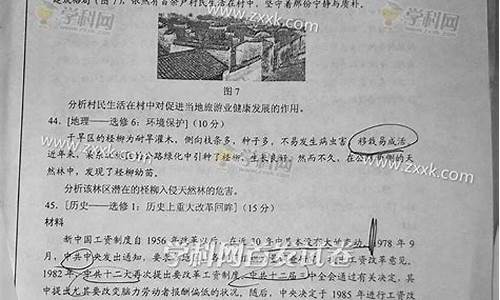 建成格局(图7),依然有百余户村民生活在村中,坚守着那份宁静与质朴。
图7
分析村民生活在村中对促进当地旅游业健康发展的作用。
44. [地理——选修6:环境保护](10分)
干旱区的柽柳为耐旱灌木,侧向枝条多,种子多,不易发生病虫害,移栽易成活
近年来,某 公路绿化中引种了柽柳,生长良好。然而不久,在公路两侧的天
然林中,发现了柽柳幼苗。
分析该林区潜在的柽柳入侵天然林的危害。
45. [历史——选修1:历史上重大改革回眸](15分)
材料
新中国工资制度自1956年改革以后,在近30年中基本没有大的变动。1978年9
月,中共中央发出通知,要 工资改革意见。
1982年,中共十二大再次提出要改革工资制度。中共十二届三中全会通过有关决定,其
中提出尤其要改变脑力劳动者报酬偏低的状况。随后,中央决定于1985年进行工资改
学科网
www.zxxk.com
学科网
www.zxxk.com
www.zxxk.com
学科网
www.zxxk.com
学科网首发试卷